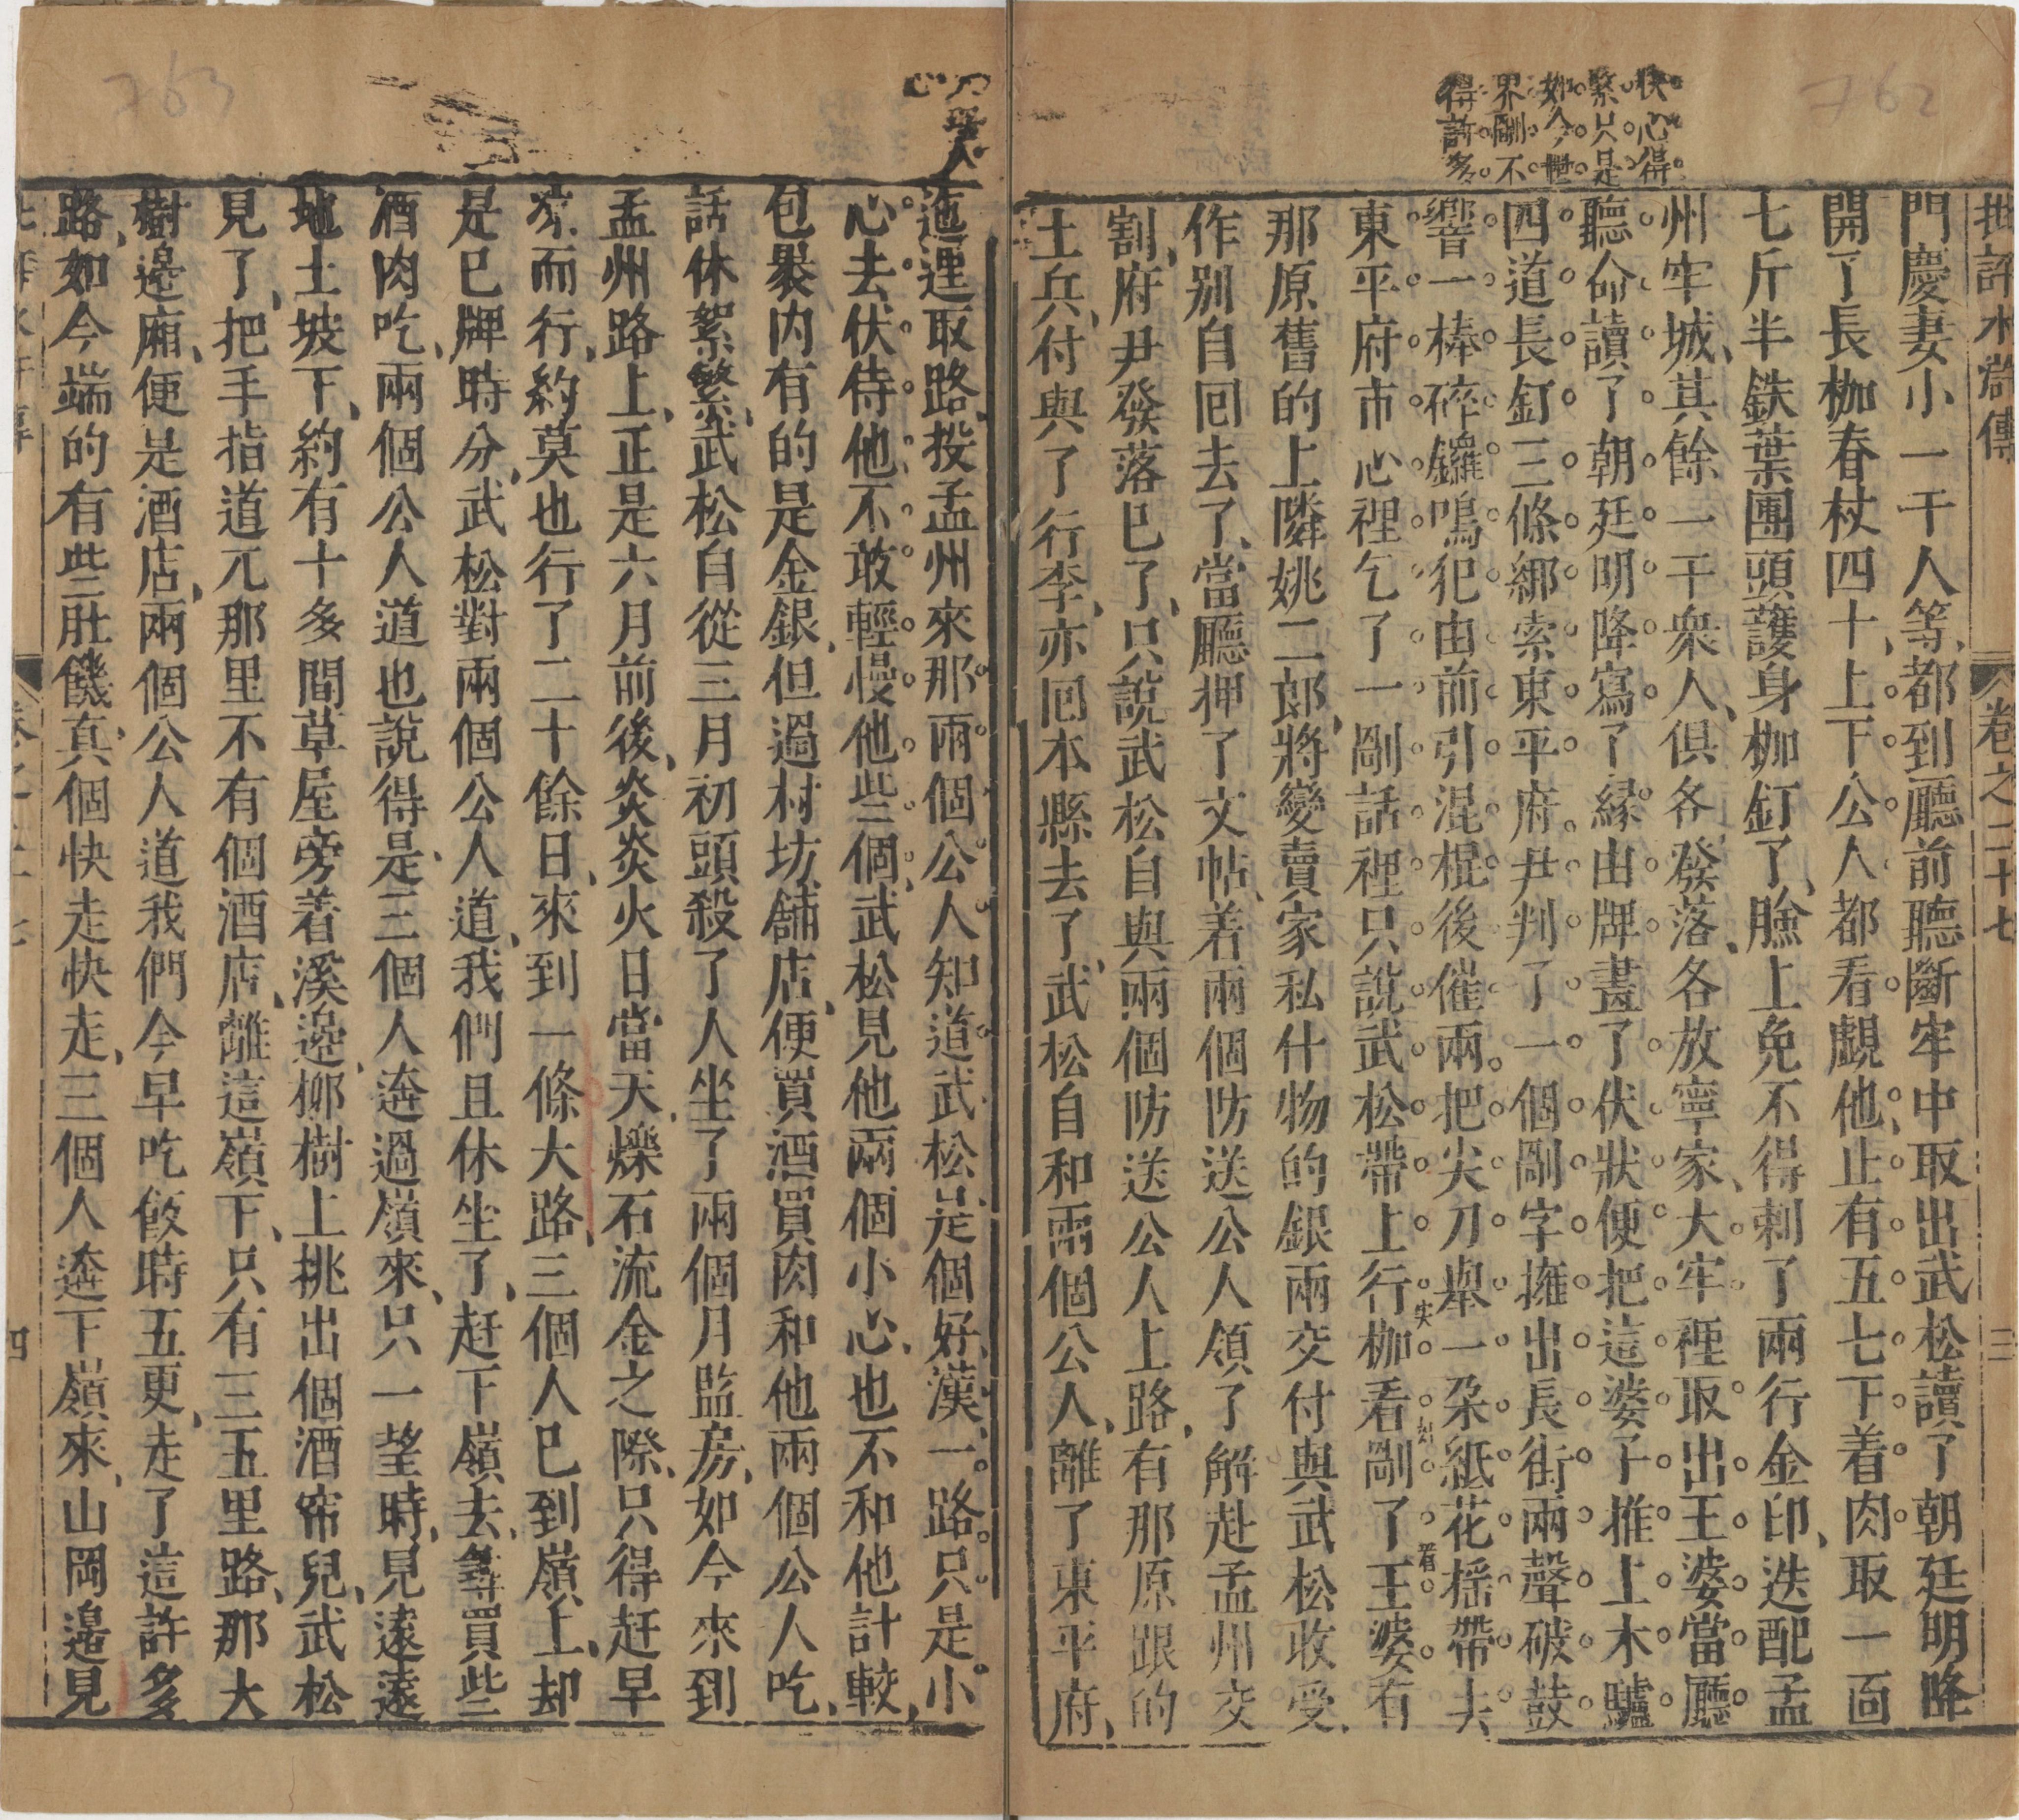 762
批評水滸傳 卷之二十七 三
快心得
緊只是
如今世
界剮不
得許多
門慶妻小一干人等都到廳前聽斷牢中取出武松讀了朝廷明降
開了長枷春杖四十上下公人都看覷他止有五七下着肉取一面
七斤半鉄葉團頭護身枷釘了臉上免不得刺了兩行金印迭配孟
州牢城其餘一干衆人俱各發落各放寧家大牢裡取出王婆當廳
聽命讀了朝廷明降寫了縁由牌畫了伏狀便把這婆子推上木驢
四道長釘三條綁索東平府尹判了一個剮字擁出長街兩聲破鼓
響一棒碎鑼鳴犯由前引混棍後催兩把尖刀舉一朶紙花揺帶去
東平府市心裡乞了一剮話裡只說武松帶上行枷看剮了王婆有
那原舊的上隣姚二郎將變賣家私什物的銀兩交付與武松收受
作別自回去了當廳押了文帖着兩個防送公人領了解赴孟州交
割府尹發落已了只說武松自與兩個防送公人上路有那原跟的
土兵付與了行李亦回本縣去了武松自和兩個公人離了東平府
763
迤邐取路投孟州來那兩個公人知道武松是個好漢一路只是小
心去伏侍他不敢輕慢他些個武松見他兩個小心也不和他計較
包裹内有的是金銀但過村坊舖店便買酒買肉和他兩個公人吃
話休絮繁武松自從三月初頭殺了人坐了兩個月監房如今來到
孟州路上正是六月前後炎炎火日當天爍石流金之際只得赶早
凉而行約莫也行了二十餘日來到一條大路三個人已到嶺上却
是巳牌時分武松對兩個公人道我們且休坐了赶下嶺去尋買些
酒肉吃兩個公人道也說得是三個人奔過嶺來只一望時見遠遠
地土坡下約有十多間草屋旁着溪邊柳樹上挑出個酒帘兒武松
見了把手指道兀那里不有個酒店離這嶺下只有三五里路那大
樹邊廂便是酒店兩個公人道我們今早吃飯時五更走了這許多
路如今端的有些肚饑真個快走快走三個人奔下嶺來山岡邊見
四